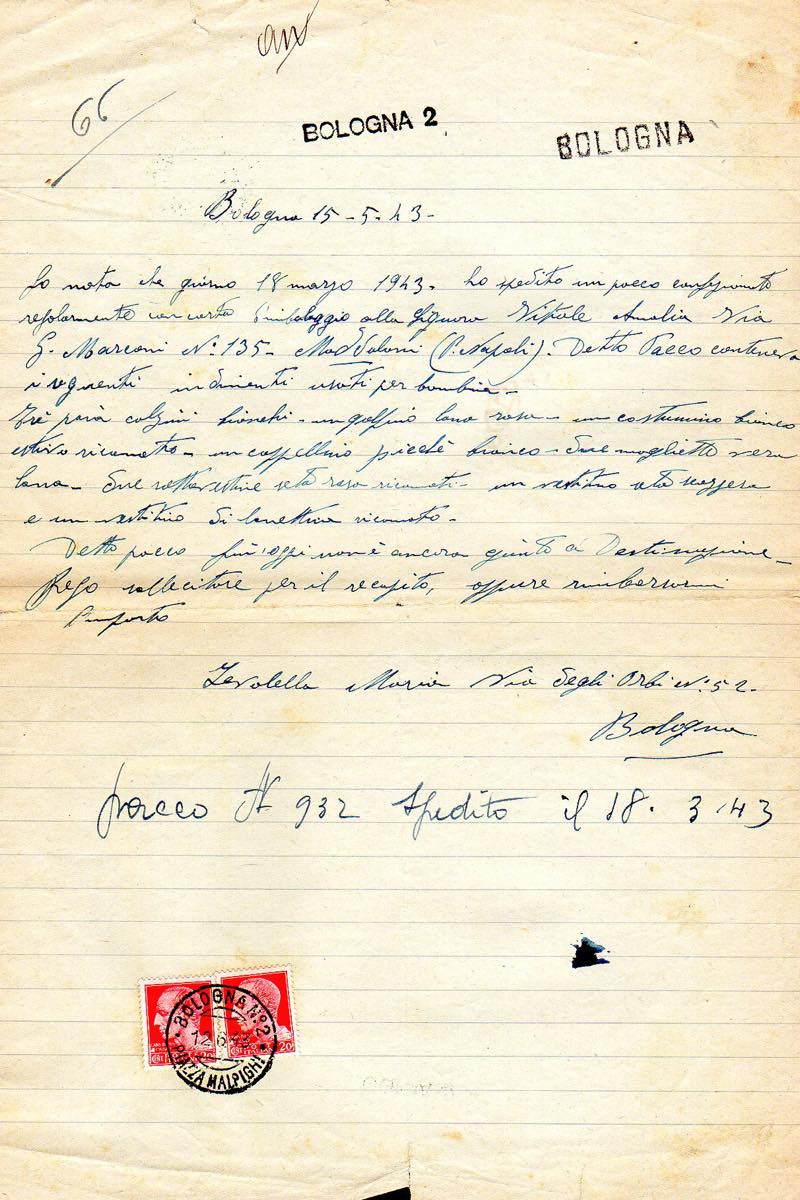 66
BOLOGNA 2
BOLOGNA
Bologna 15-5-43-
Fo nota che giorno 18 marzo 1943- ho spedito un pacco confezionato
regolarmente con carta d'imballaggio alla Signora Vitale Amalia Via
G. Marconi N° 135- Maddaloni (P. Napoli). Detto Pacco conteneva
i seguenti indumenti usati per bambina-
Tre paia calzini bianchi- un golfino lana rosa- un costumino bianco
estivo ricamato- un cappellino picchè bianco- due magliette vera
lana- due sottovestine seta rosa ricamati- un vestitino seta
e un vestitino di lanettina ricamato-
Detto pacco fin'oggi non è ancora giunto a Destinazione-
Prego sollecitare per il recapito, oppure rimborsarmi
l'importo
Maria Via degli Orbi N° 52-
Bologna
pacco N 932 Spedito il 18. 3.43
BOLOGNA N.2
12.6.43
PIAZZA MALPIGHI
20
20